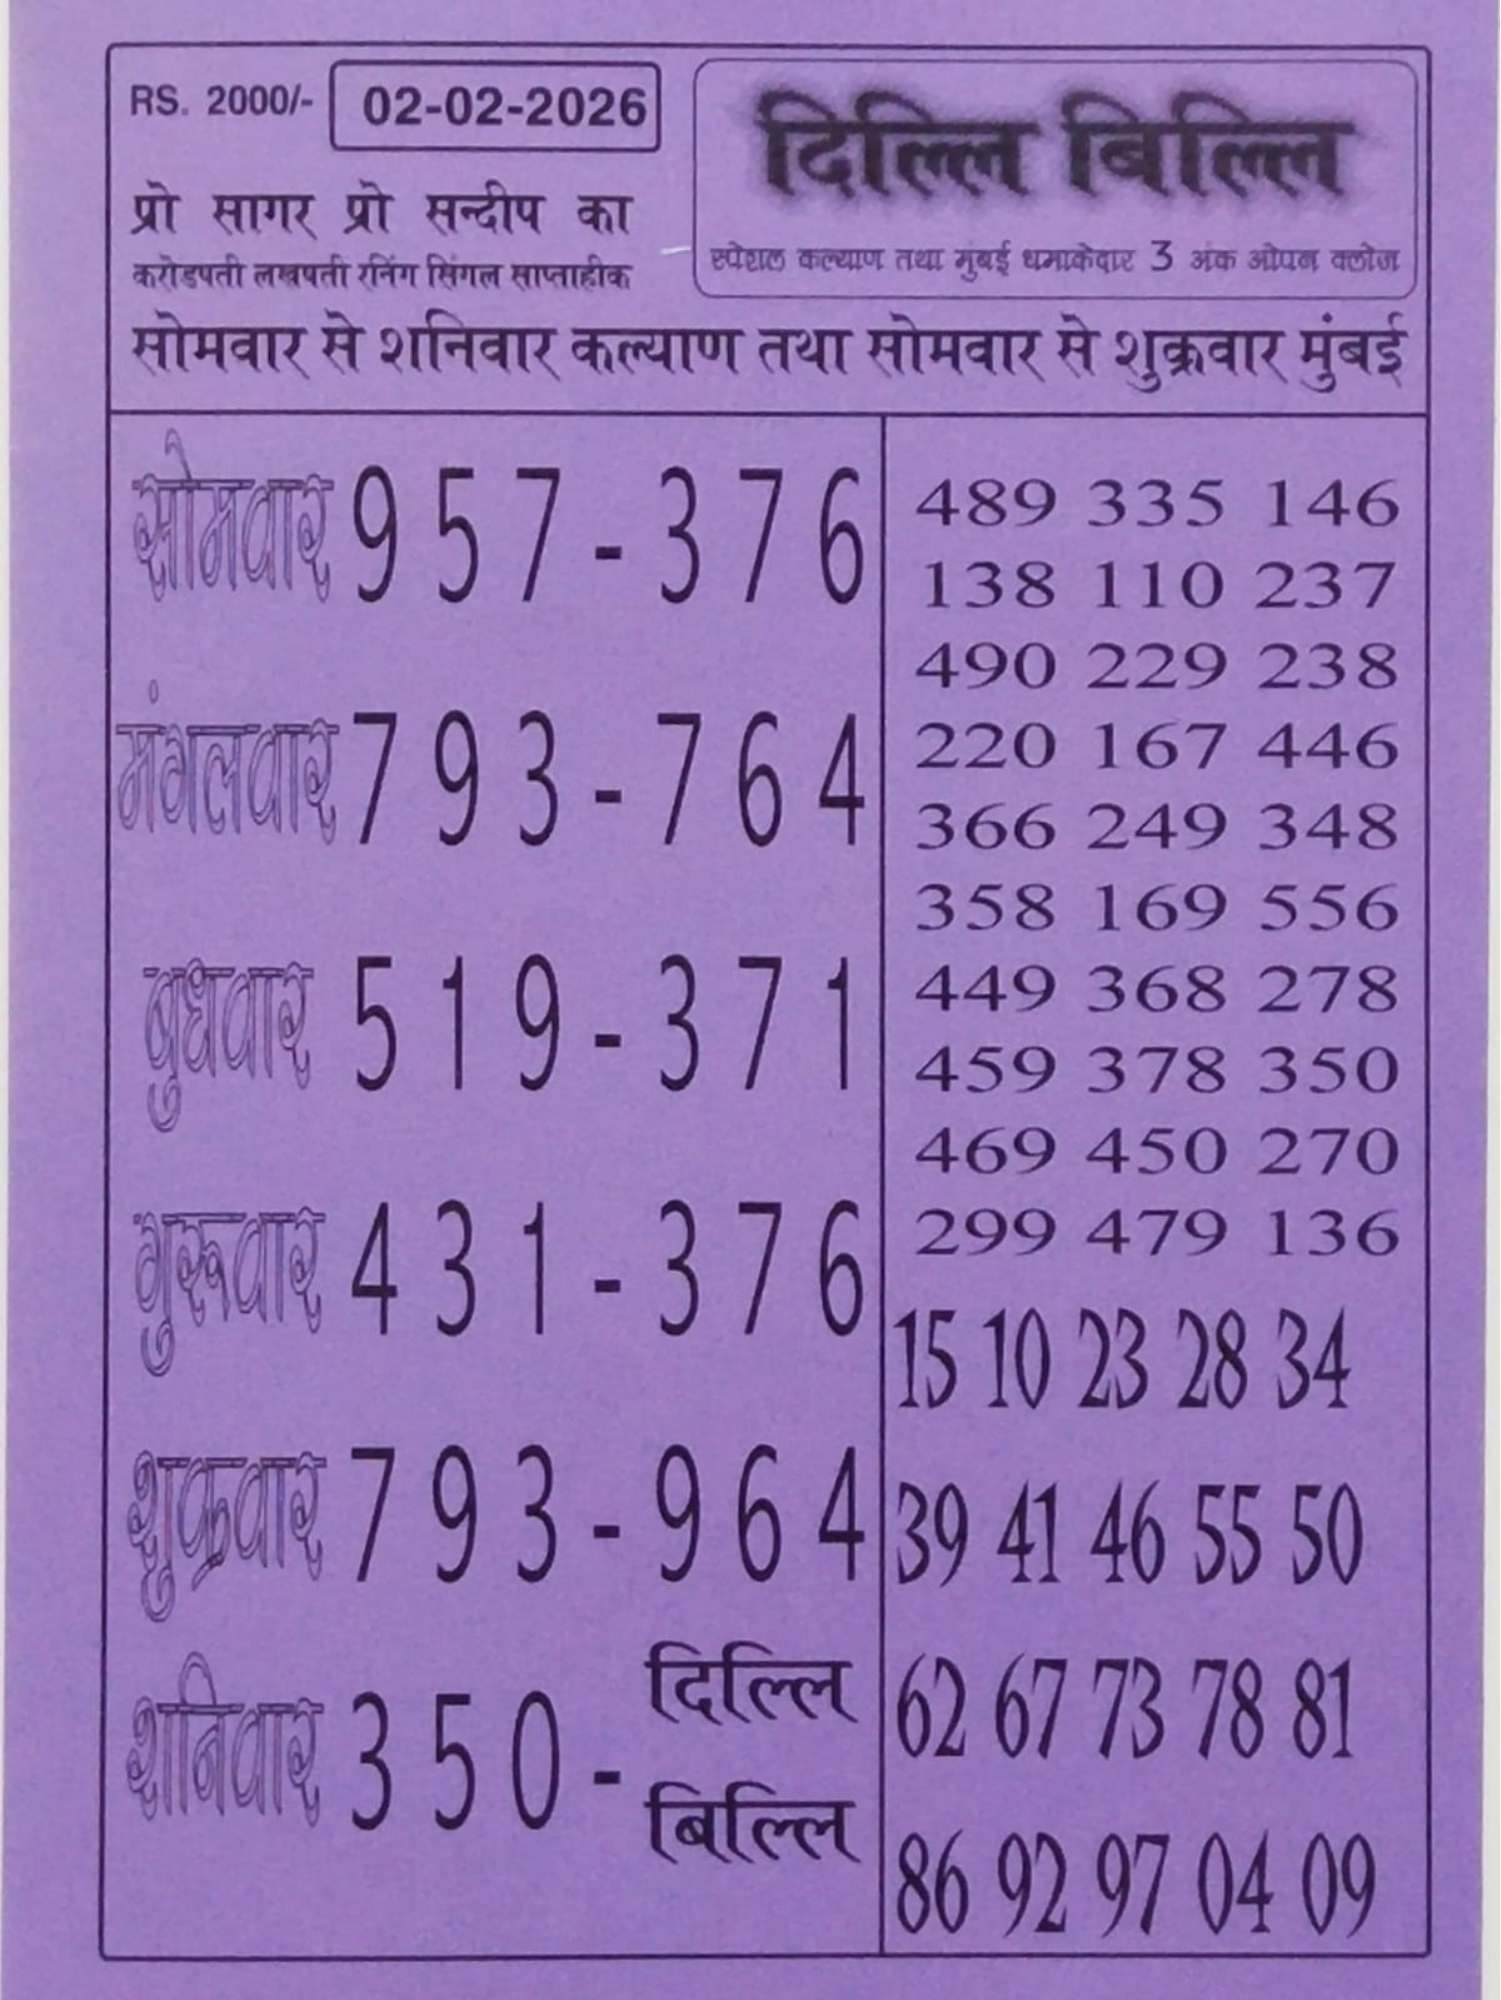 RS. 2000/- 02-02-2026
दिल्लि बिल्लि
प्रो सागर प्रो सन्दीप का
करोडपती लखपती रनिंग सिंगल साप्ताहीक
स्पेशल कल्याण तथा मुंबई धमाकेदार 3 अंक ओपन क्लोज
सोमवार से शनिवार कल्याण तथा सोमवार से शुक्रवार मुंबई
सोमवार 957-376
मंगलवार 793-764
बुधवार 519-371
गुरूवार 431-376
शुक्रवार 793-964
शनिवार 350- दिल्लि
बिल्लि
489 335 146
138 110 237
490 229 238
220 167 446
366 249 348
358 169 556
449 368 278
459 378 350
469 450 270
299 479 136
15 10 23 28 34
39 41 46 55 50
62 67 73 78 81
86 92 97 04 09